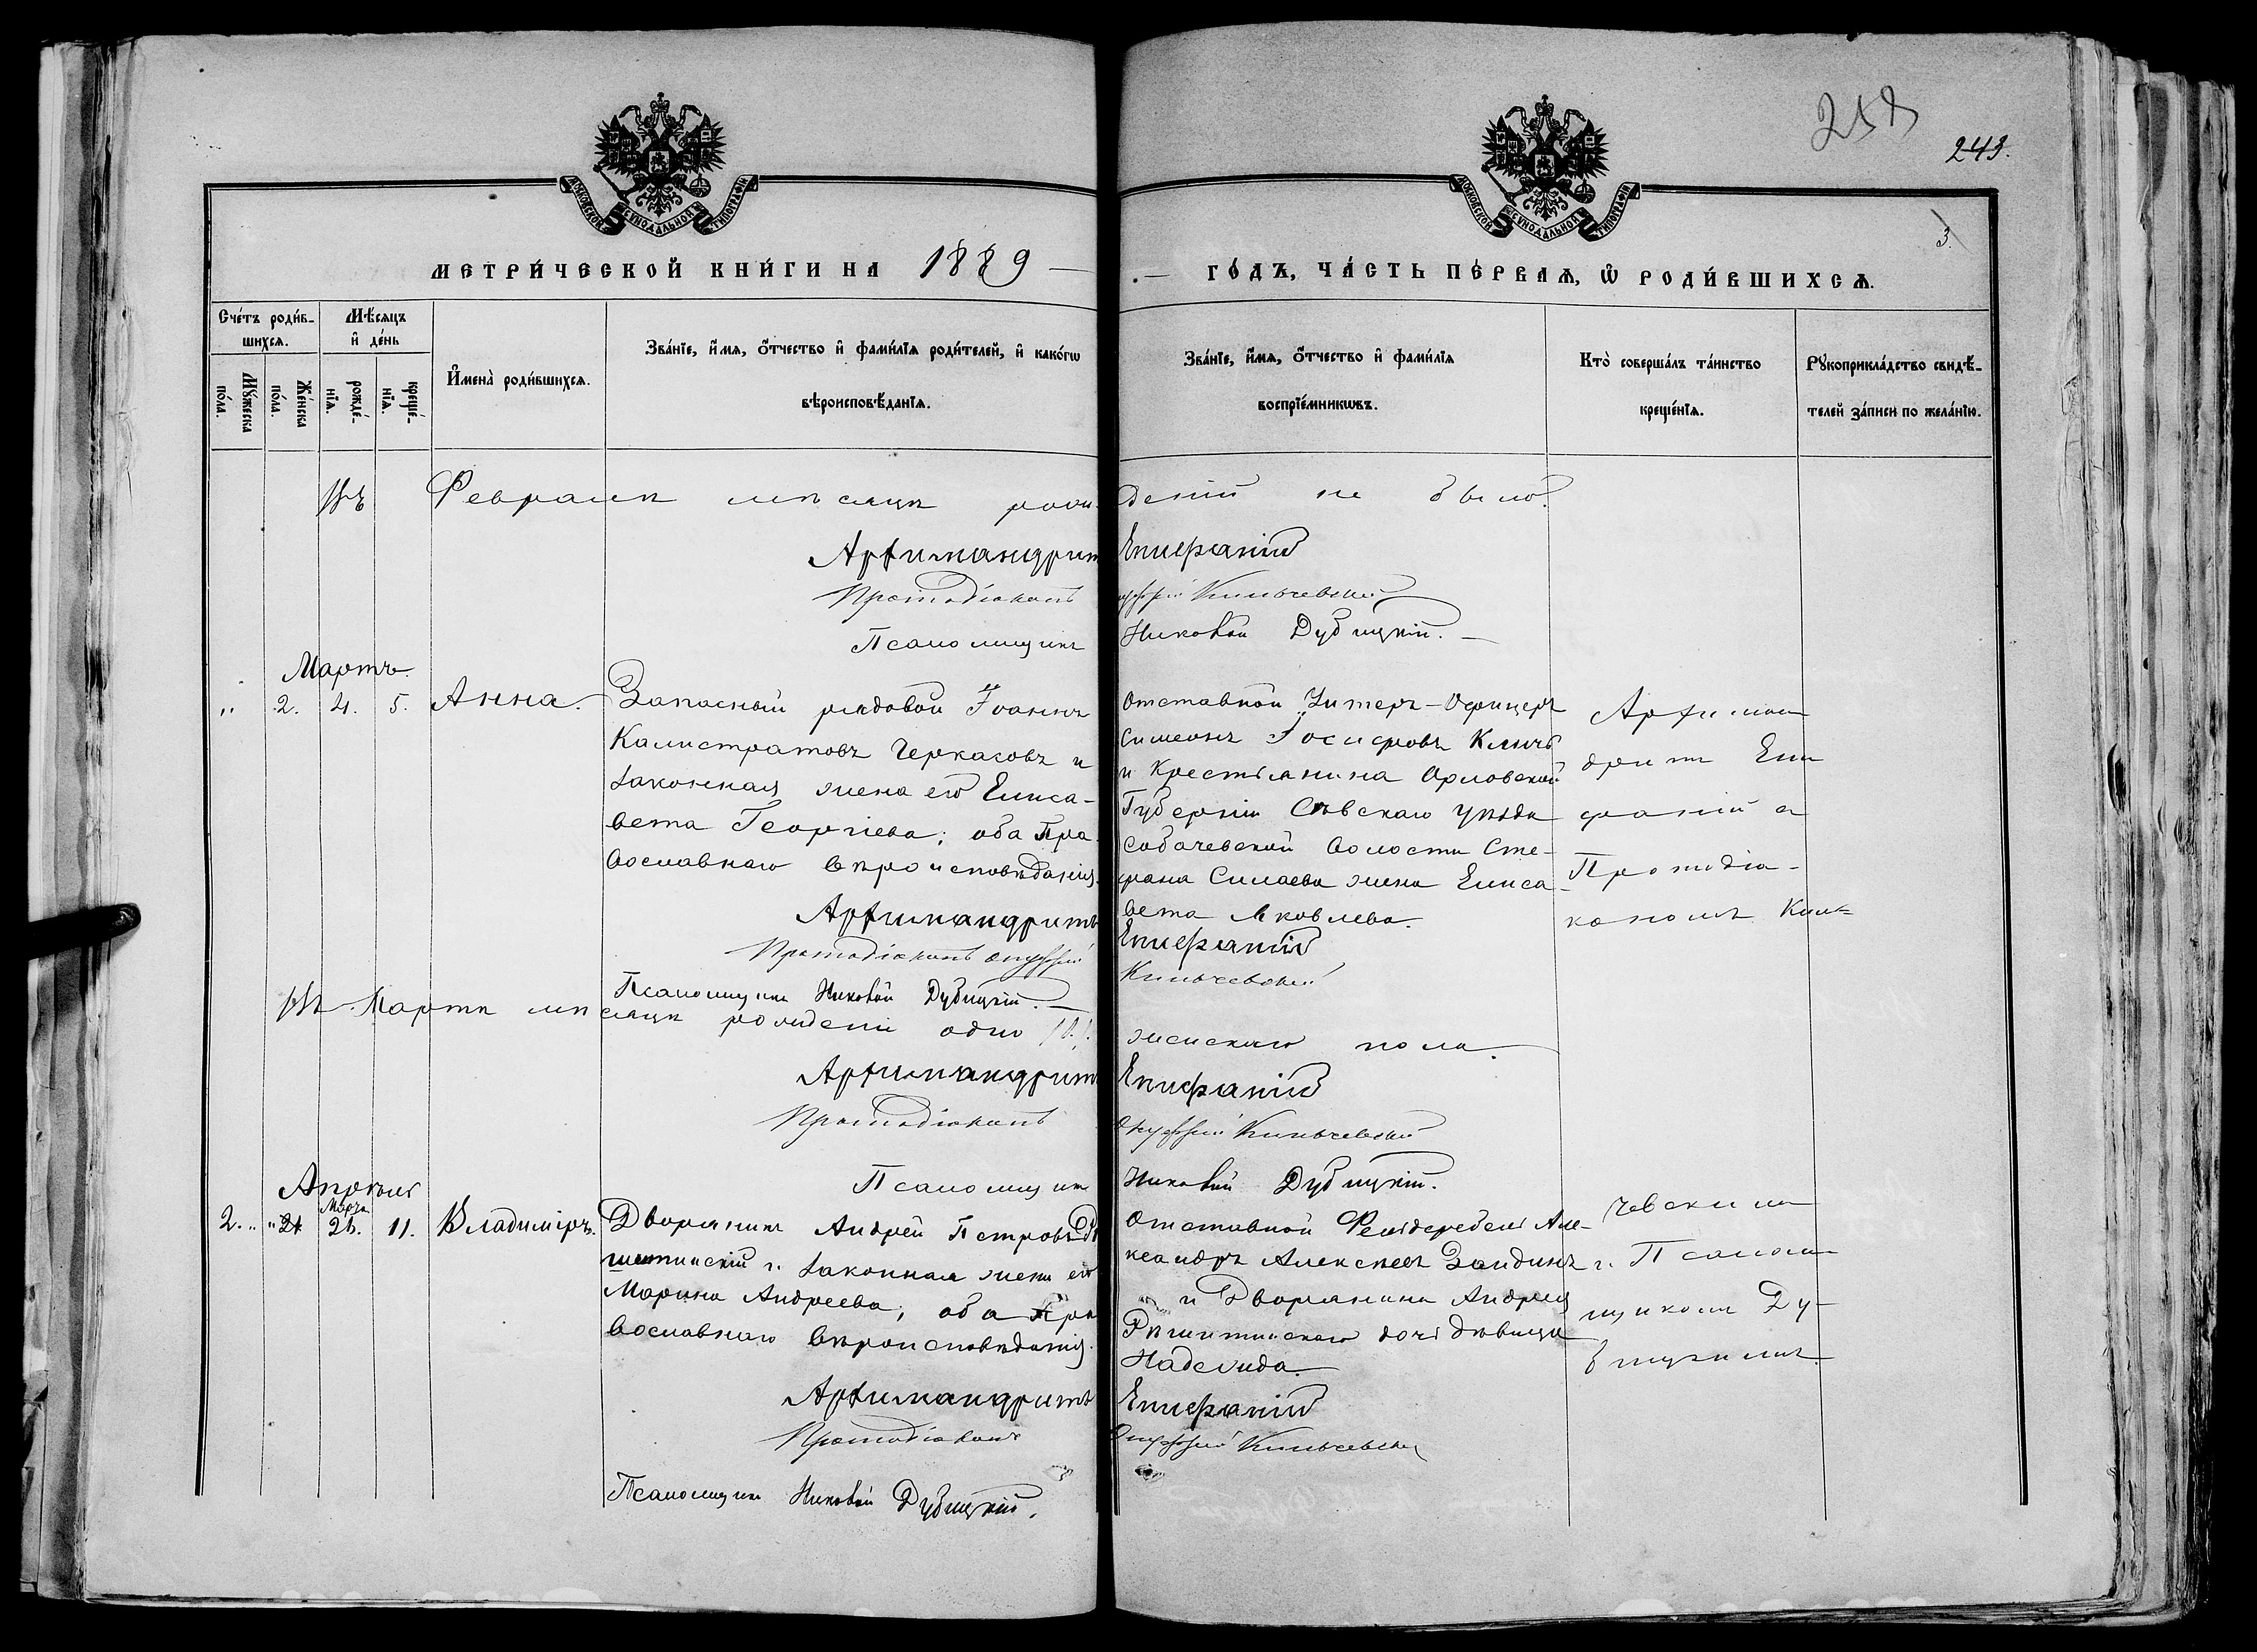 258
243.
3.
МОСКОВСКОЙ СѴНОДАЛЬНОЙ ТИПОГРАФІИ
МОСКОВСКОЙ СѴНОДАЛЬНОЙ ТИПОГРАФІИ
МЕТРИ́ЧЕСКОЙ КНИ́ГИ НА 1889 —
— ГО́ДЪ, ЧА́СТЬ ПЕ́РВАѦ, Ѽ РОДИ́ВШИХСѦ.
Сче́тъ роди́в-
шихсѧ.
Мѣ́сѧцъ
и҆ де́нь
Мꙋ́жеска
по́ла.
Же́нска
по́ла.
рожде́-
нїѧ.
креще́-
нїѧ.
И҆мена̀ роди́вшихсѧ.
Зва́нїе, и҆́мѧ, ѻ҆́тчество и҆ фами́лїѧ роди́телей, и҆ како́гѡ
вѣроисповѣ́данїѧ.
Зва́нїе, и҆́мѧ, ѻ҆́тчество и҆ фами́лїѧ
воспрїе́мникѡвъ.
Кто̀ соверша́лъ та́инство
креще́нїѧ.
Рꙋкоприкла́дство свидѣ́-
телей за́писи по жела́нїю.
Въ Февралѣ мѣсяцѣ рож-
деній не было.
Архимандритъ Епифаній
Протодіаконъ Кильчевскій
Псаломщикъ Никовой Дубицкій. —
Мартъ.
" 2. 4. 5. Анна.
Запасный рядовой Іоаннъ
Калистратовъ Черкасовъ и
законная жена его Елиса-
вета Георгіева; оба Пра-
вославнаго вѣроисповѣданія.
Отставной Унтеръ-Офицеръ
Симеонъ Іосифовъ
и Крестьянина Орловской
Губерніи Сѣвскаго уѣзда
Собачевской волости Сте-
фана Силаева жена Елиса-
вета Яковлева.
Архиман
дритъ Епи
фаній съ
Протодіа-
кономъ Киль-
Архимандритъ Епифаній
Протодіаконъ Онуфрій Кильчевскій
Псаломщикъ Никовой Дубицкій. —
Въ Мартѣ мѣсяцѣ рожденій одно /1./
женскаго пола.
Архимандритъ Епифаній
Протодіаконъ Онуфрій Кильчевскій
Псаломщикъ Никовой Дубицкій.
Апрѣль
Марта
2. " 11. Владиміръ.
Дворянинъ Андрей Петровъ Рѣ
шетинскій и законная жена его
Марина Андреева; оба Пра
вославнаго вѣроисповѣданія.
Отставной Фельдфебель Але-
ксандръ Алексѣевъ
и Дворянина Андрея
Рѣшитинскаго дочь дѣвица
Надежда.
чевскимъ
и Псалом
щикомъ Ду-
бицкимъ.
Архимандритъ Епифаній
Протодіаконъ Онуфрій Кильчевскій
Псаломщикъ Никовой Дубицкій.